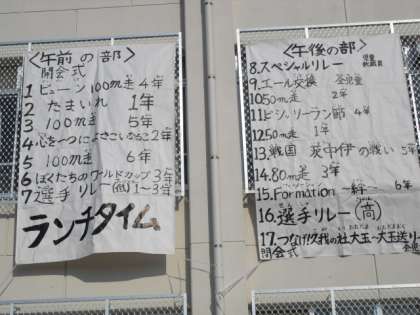 〈午前の部〉
開会式
1 ビューン100m走 4年
2 たまいれ 1年
3 100m走 5年
4 心を一つによさこいおどるころ 2年
5 100m走 6年
6 ぼくたちのワールドカップ 3年
7 選手リレー(低) 1~3年
ランチタイム
〈午後の部〉
8.スペシャルリレー 児童 教職員
9.エール交換 全児童
10 50m走 2年
11.ビシ、ソーラン節 4年
12 50m走 1年
13.戦国 茨中伊の戦い 5年
14.80m走 3年
15.Formation ~絆~ 6年
16.選手リレー(高)
17.つなげ!久我の杜大玉~大玉送り~
閉会式